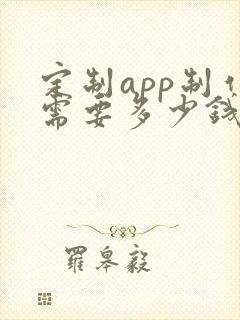 定制app制作
需要多少钱
羅皋毅